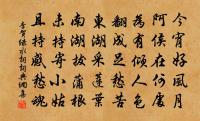 今宵好風月
阿侯在何處
為有傾人色
翻成足愁苦
東湖采蓮葉
南湖拔蒲根
未持寄小姑
且持感愁魂
李賀綠水詞詞典網書